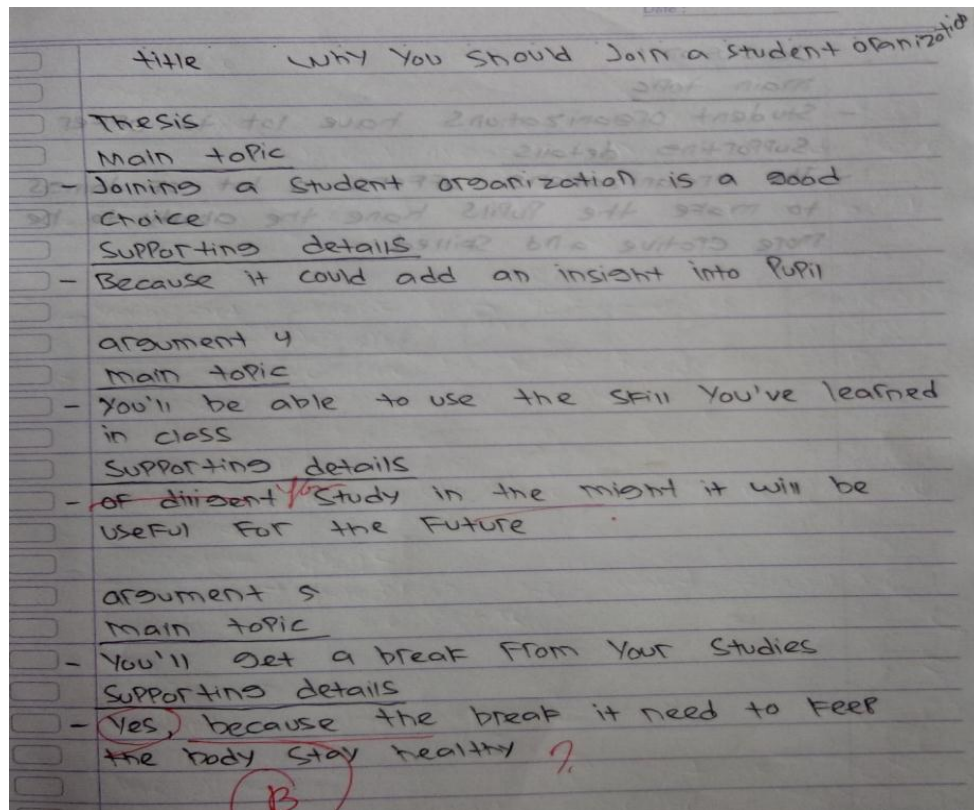 title Why You Should Join a student oranization
Thesis
Main topic
- Joining a student organization is a good
choice
Supporting details
- Because it could add an insight into Pupil
argument 4
main topic
- You'll be able to use the skill You've learned
in class
Supporting details
- of diligent You study in the might it will be
useful For the Future
argument 5
main topic
- You'll get a break From Your Studies
Supporting details
- Yes, because the break it need to keep
the body stay healthy ?
B